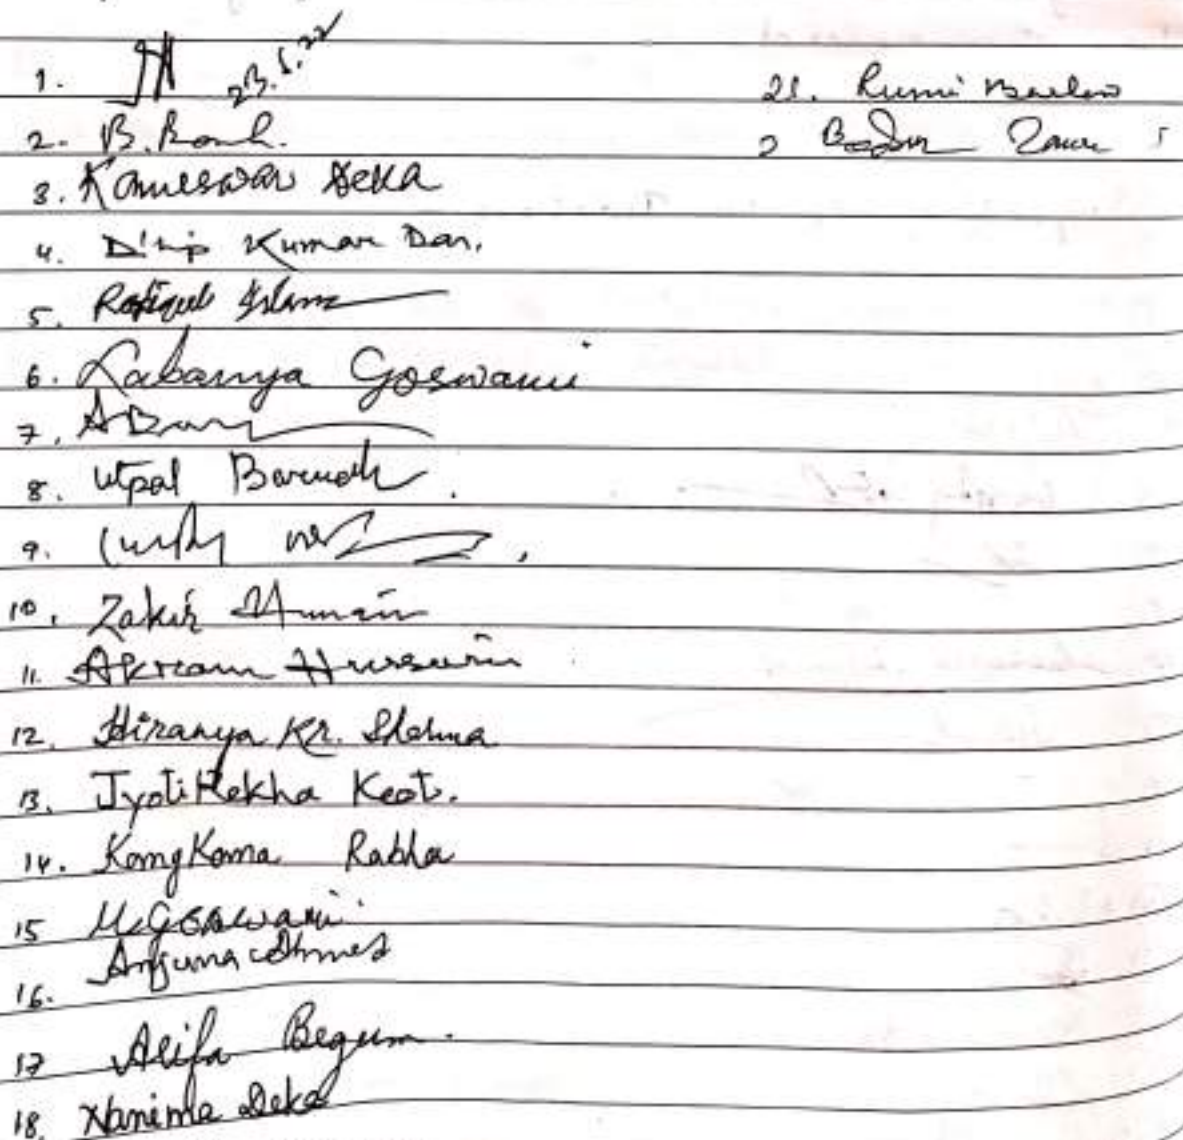 1. 23.5.22
2. B.
3. Kameswar Deka
4. Dilip Kumar Das.
5. Rafiqul Islam
6. Labanya Goswami
7.
8. Utpal Baruah.
9.
10. Zakir Hussain
11. Akram Hussain
12. Hiranya Kr. Sharma
13. Jyoti Rekha Keot.
14. Kongkona Rabha
15 M. Goswami
16. Anjuma Ahmed
17 Alifa Begum.
18. Nanima Deka
21. Rumi